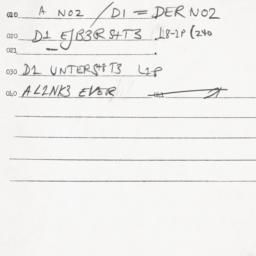 010 A NO2 / D1 = DER NO2
020 D1 EJB3R S4T3 L8-1P (240
021
030 D1 UNTERS4T3 L1P
040 A L1NK3 EVER